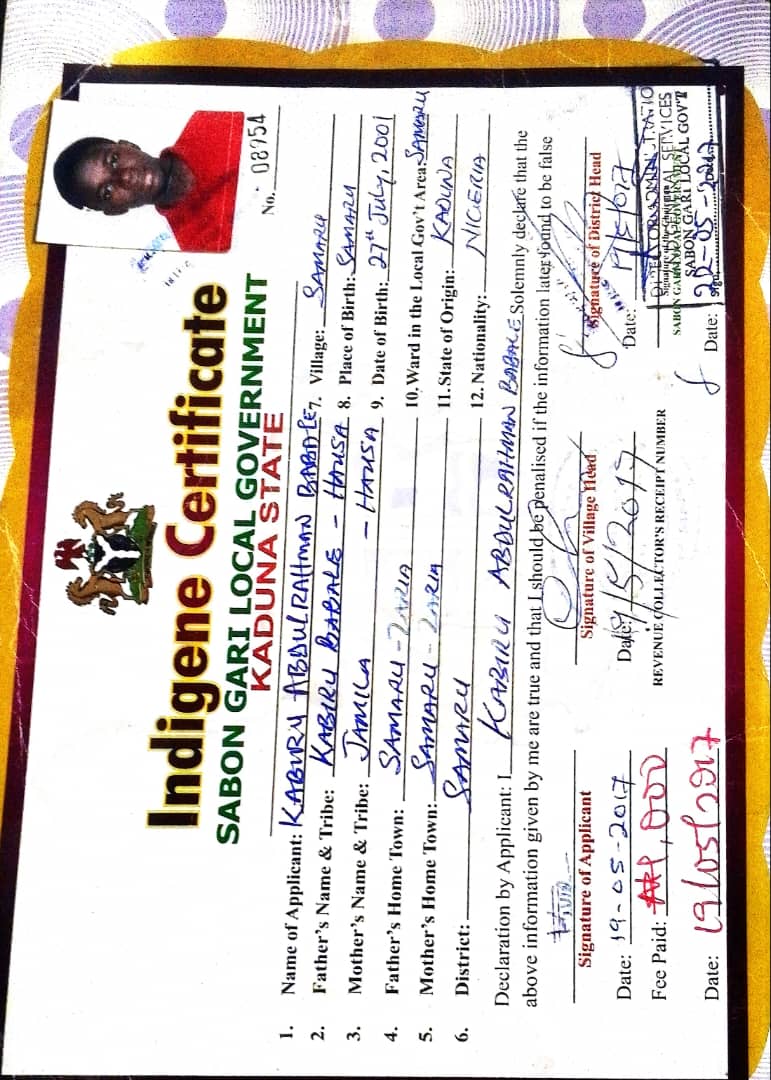 No. 08954
Indigene Certificate
SABON GARI LOCAL GOVERNMENT
KADUNA STATE
1. Name of Applicant: KABURU ABDULRAHMAN BABALE
2. Father's Name & Tribe: KABIRU BABALE - HAUSA
3. Mother's Name & Tribe: JAMILA - HAUSA
4. Father's Home Town: SAMARU - ZARIA
5. Mother's Home Town: SAMARU - ZARIA
6. District: SAMARU
7. Village: SAMARU
8. Place of Birth: SAMARU
9. Date of Birth: 27th July, 2001
10. Ward in the Local Gov't Area: SAMARU
11. State of Origin: KADUNA
12. Nationality: NIGERIA
Declaration by Applicant: I KABIRU ABDULRAHMAN BABALE Solemnly declare that the
above information given by me are true and that I should be penalised if the information later found to be false
Signature of Applicant
Date: 19-05-2017
Fee Paid:
Date: 19/05/2017
Signature of Village Head
Date: 19/5/2017
REVENUE COLLECTOR'S RECEIPT NUMBER
Signature of District Head
Date:
SABON GARI LOCAL GOV'T
Date: 22-05-2017